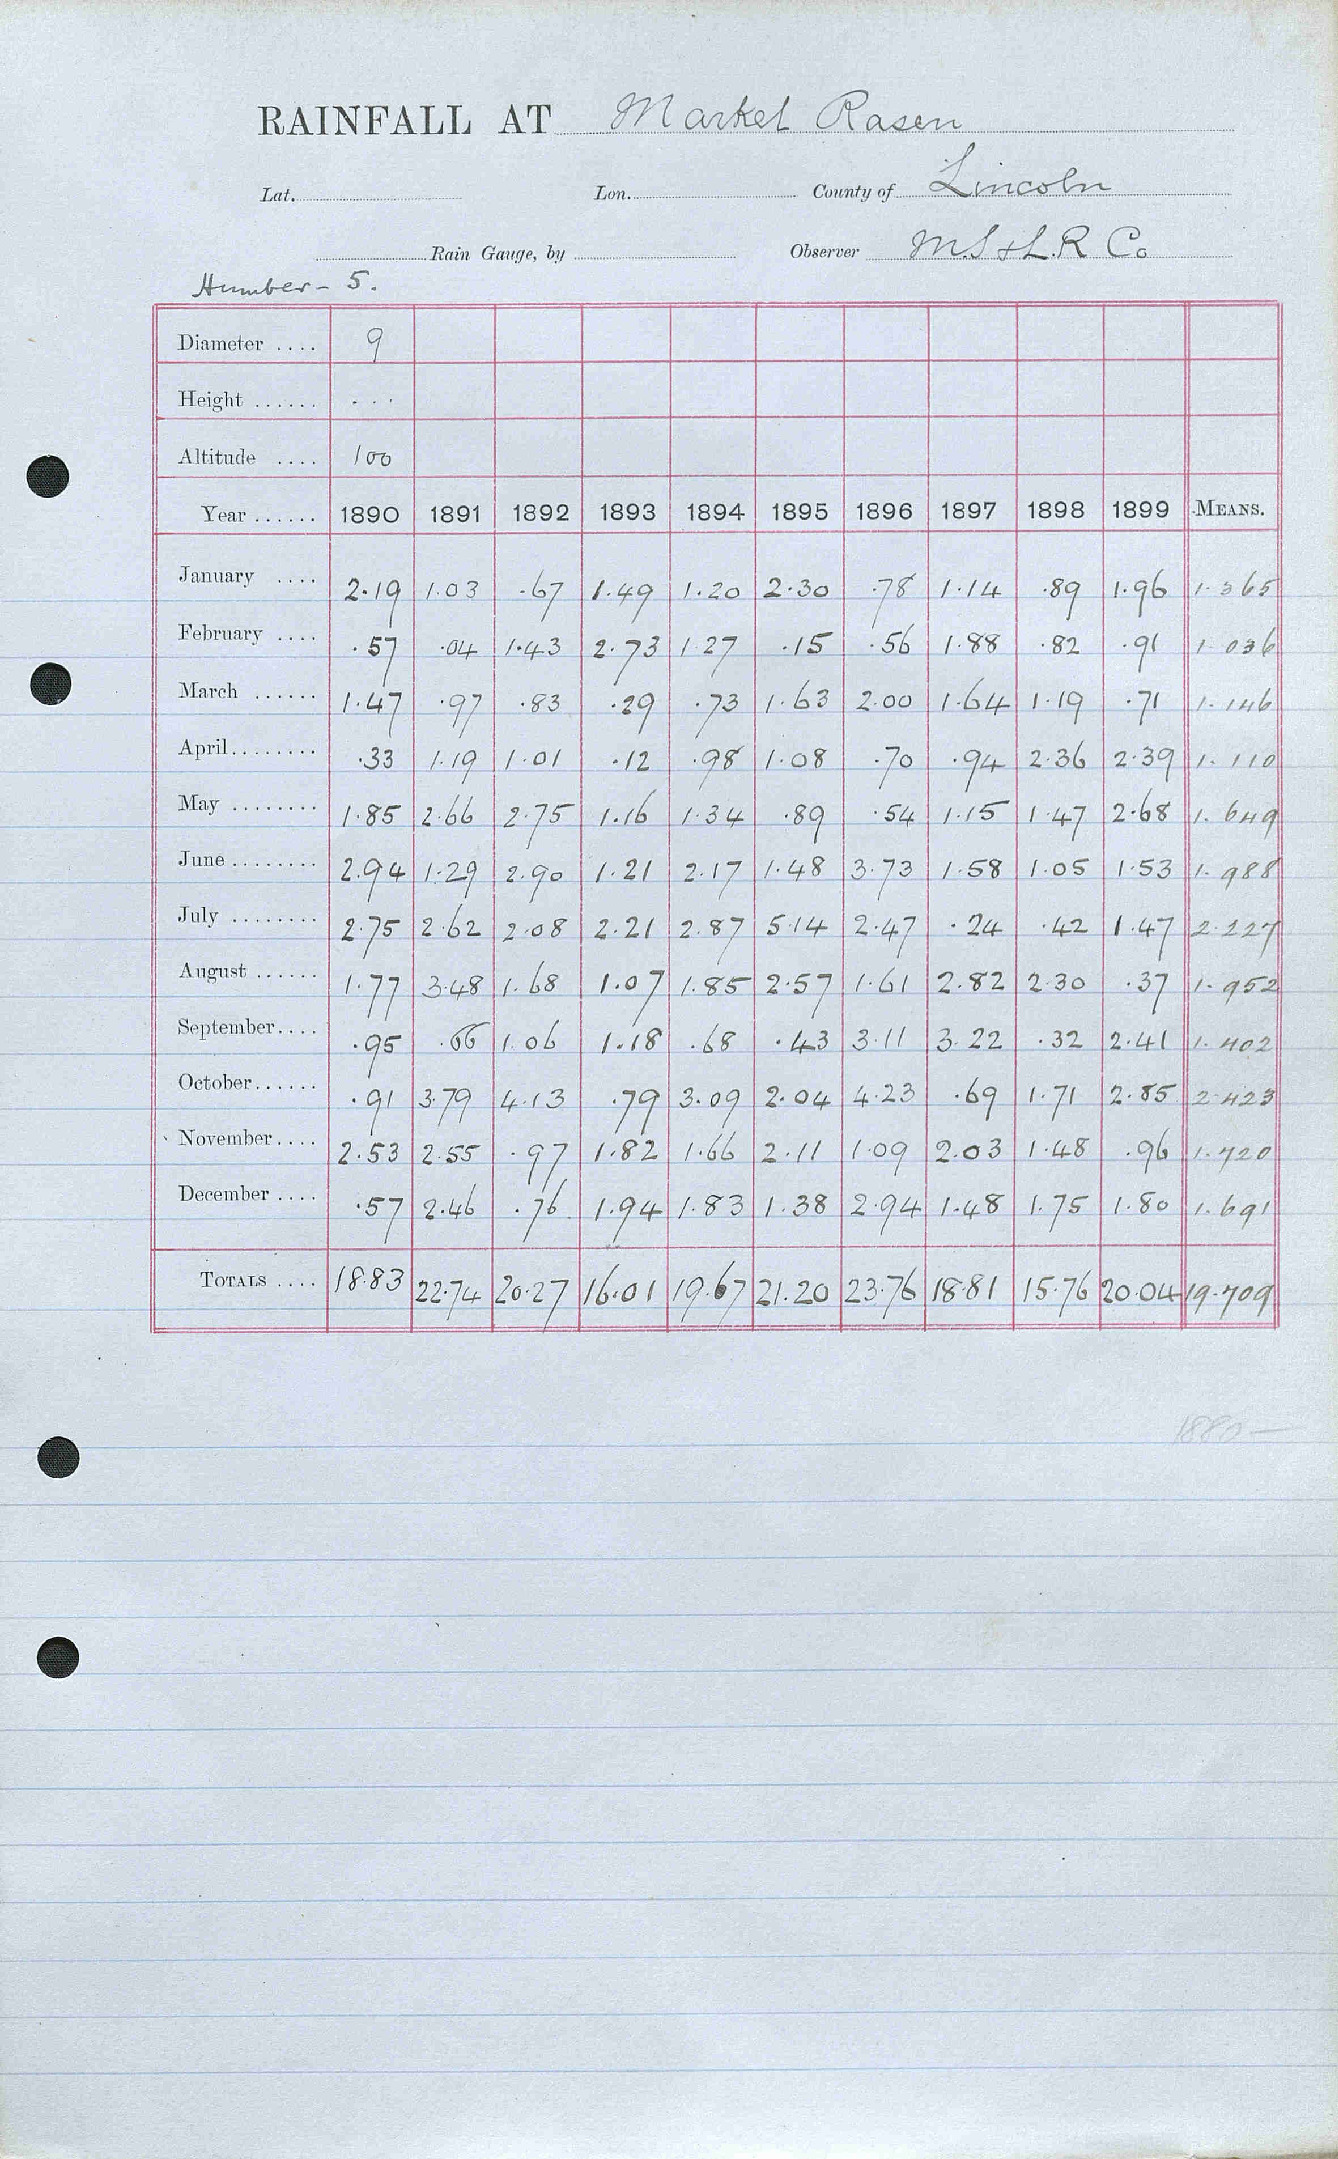 RAINFALL AT Market Rasen
Lat. Lon. County of Lincoln
Rain Gauge, by Observer M.S & L.R Co
Humber - 5.
Diameter .... 9
Height ...... ...
Altitude .... 100
Year ...... 1890 1891 1892 1893 1894 1895 1896 1897 1898 1899 MEANS.
January .... 2.19 1.03 .67 1.49 1.20 2.30 .78 1.14 .89 1.96 1.365
February .... .57 .04 1.43 2.73 1.27 .15 .56 1.88 .82 .91 1.036
March ...... 1.47 .97 .83 .29 .73 1.63 2.00 1.64 1.19 .71 1.146
April........ .33 1.19 1.01 .12 .98 1.08 .70 .94 2.36 2.39 1.110
May ........ 1.85 2.66 2.75 1.16 1.34 .89 .54 1.15 1.47 2.68 1.649
June ........ 2.94 1.29 2.90 1.21 2.17 1.48 3.73 1.58 1.05 1.53 1.988
July ........ 2.75 2.62 2.08 2.21 2.87 5.14 2.47 .24 .42 1.47 2.227
August ...... 1.77 3.48 1.68 1.07 1.85 2.57 1.61 2.82 2.30 .37 1.952
September.... .95 .66 1.06 1.18 .68 .43 3.11 3.22 .32 2.41 1.402
October...... .91 3.79 4.13 .79 3.09 2.04 4.23 .69 1.71 2.85 2.423
November.... 2.53 2.55 .97 1.82 1.66 2.11 1.09 2.03 1.48 .96 1.720
December .... .57 2.46 .76 1.94 1.83 1.38 2.94 1.48 1.75 1.80 1.691
TOTALS .... 18.83 22.74 20.27 16.01 19.67 21.20 23.76 18.81 15.76 20.04 19.709
1880—